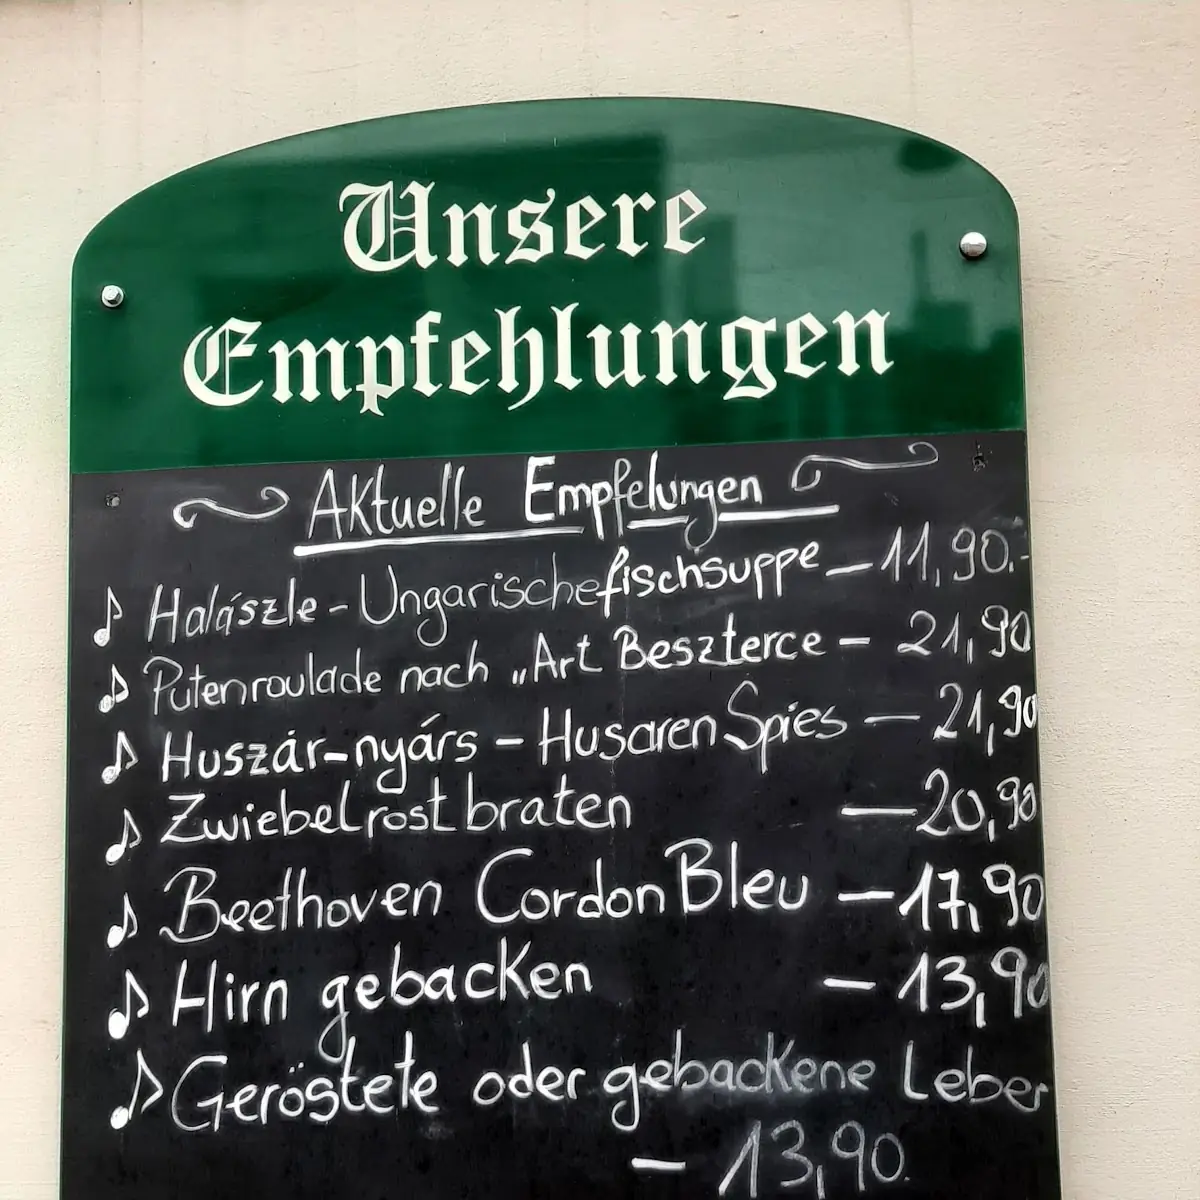 Unsere
Empfehlungen
Aktuelle Empfelungen
Halászle - Ungarischefischsuppe - 11,90.-
Putenroulade nach „Art Beszterce - 21,90
Huszár-nyárs - Husaren Spies - 21,90
Zwiebelrostbraten - 20,90
Beethoven Cordon Bleu - 17,90
Hirn gebacken - 13,90
Geröstete oder gebackene Leber
- 13,90.